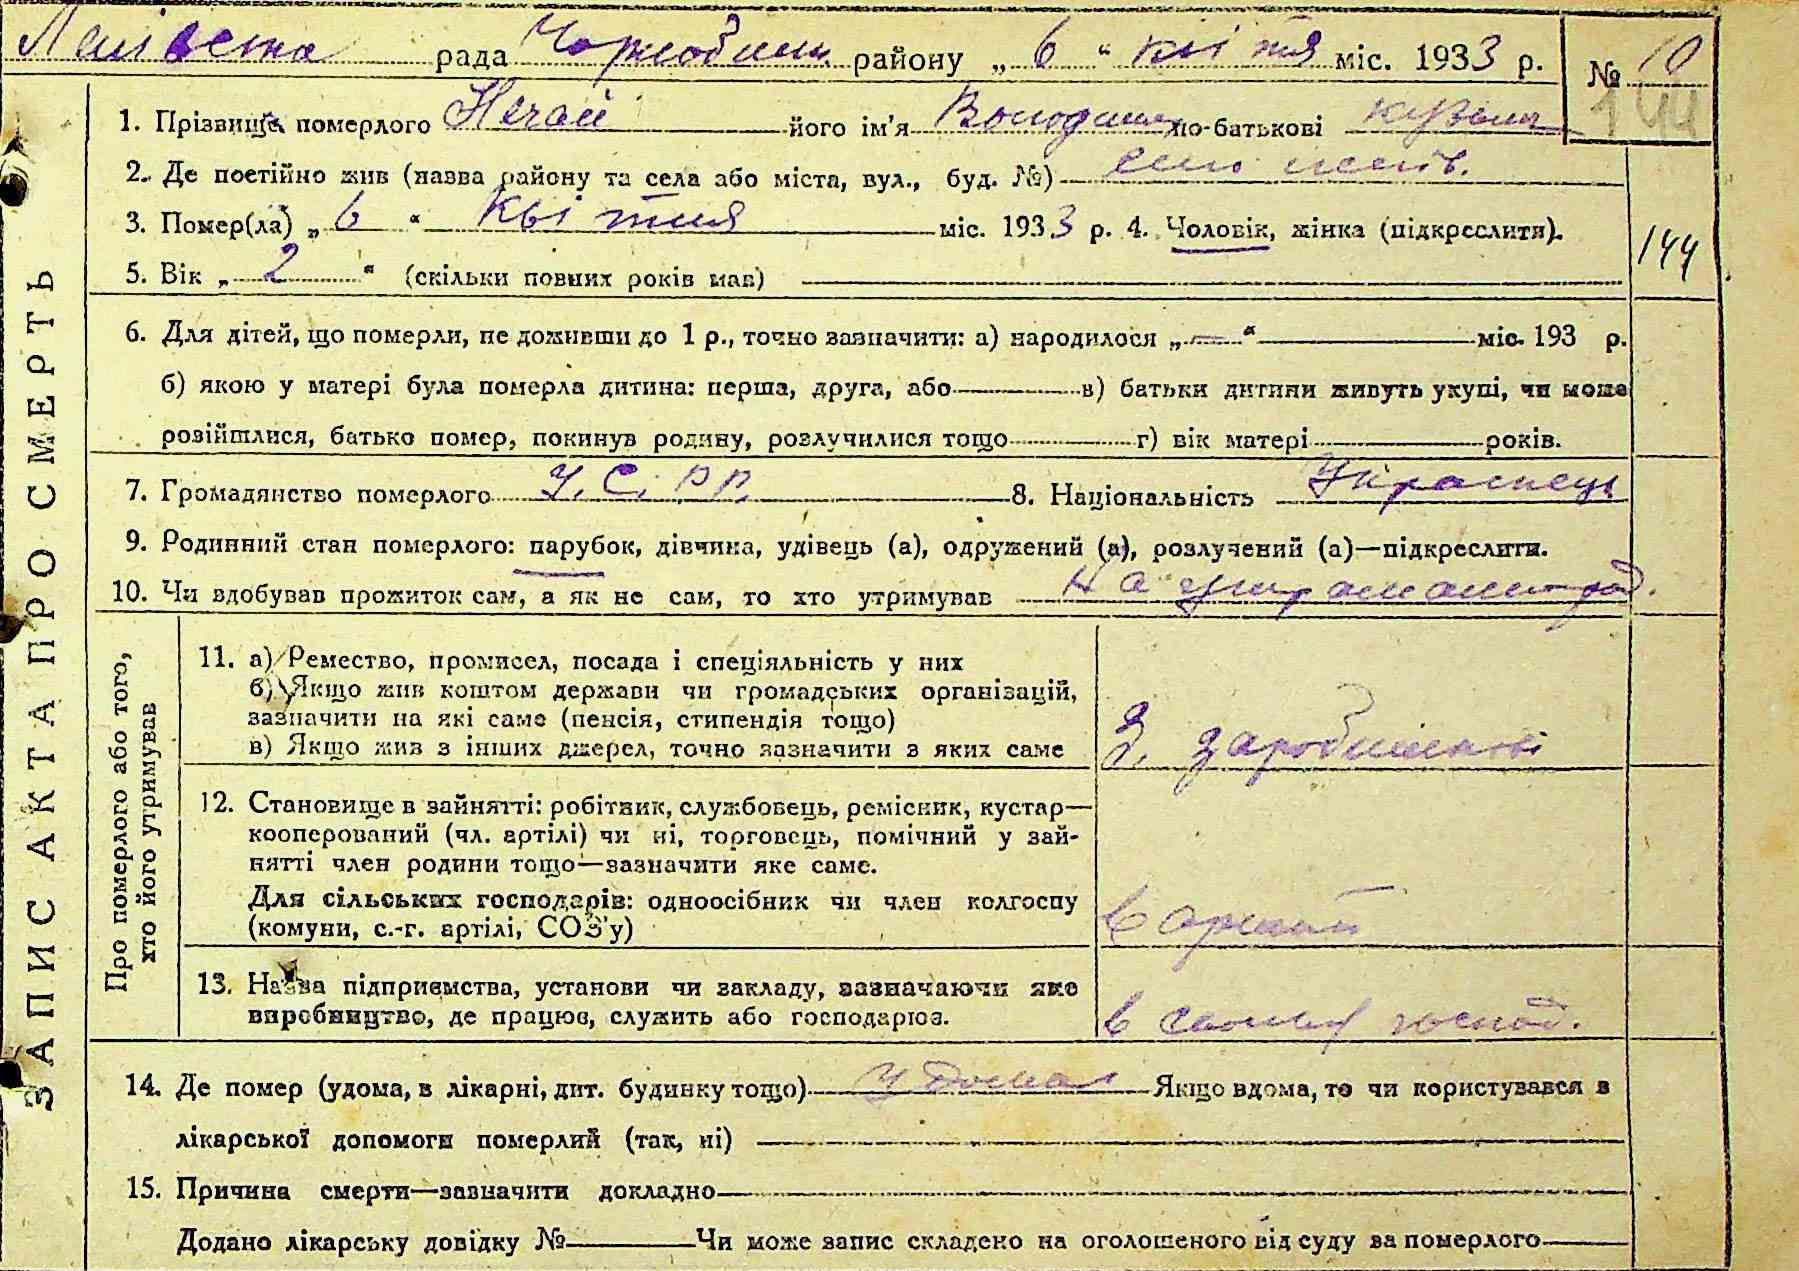 рада Чорнобил. району „ 6 “ квітня міс. 1933 р. № 10
144
1. Прізвище померлого Нечай його ім'я Володимир по-батькові
2. Де постійно жив (назва району та села або міста, вул., буд. №) село
3. Помер(ла) „ 6 “ квітня міс. 1933 р. 4. Чоловік, жінка (підкреслити).
144
5. Вік „ 2 “ (скільки повних років мав)
6. Для дітей, що померли, не доживши до 1 р., точно зазначити: а) народилося „ — “ міс. 193 р.
б) якою у матері була померла дитина: перша, друга, або в) батьки дитини живуть укупі, чи може
розійшлися, батько помер, покинув родину, розлучилися тощо г) вік матері років.
7. Громадянство померлого У.С.Р.Р. 8. Національність Українець
9. Родинний стан померлого: парубок, дівчина, удівець (а), одружений (а), розлучений (а)—підкреслити.
10. Чи здобував прожиток сам, а як не сам, то хто утримував На
ЗАПИС АКТА ПРО СМЕРТЬ
Про померлого або того,
хто його утримував
11. а) Ремество, промисел, посада і спеціяльність у них
б) Якщо жив коштом держави чи громадських організацій,
зазначити на які саме (пенсія, стипендія тощо)
в) Якщо жив з інших джерел, точно зазначити з яких саме
12. Становище в зайнятті: робітник, службовець, ремісник, кустар—
кооперований (чл. артілі) чи ні, торговець, помічний у зай-
нятті член родини тощо—зазначити яке саме.
Для сільських господарів: одноосібник чи член колгоспу
(комуни, с.-г. артілі, СОЗ'у)
в артілі
13. Назва підприємства, установи чи закладу, зазначаючи яке
виробництво, де працює, служить або господарює.
в своему господ.
14. Де помер (удома, в лікарні, дит. будинку тощо) удома Якщо вдома, то чи користувався в
лікарської допомоги померлий (так, ні)
15. Причина смерти—зазначити докладно
Додано лікарську довідку № Чи може запис складено на оголошеного від суду за померлого